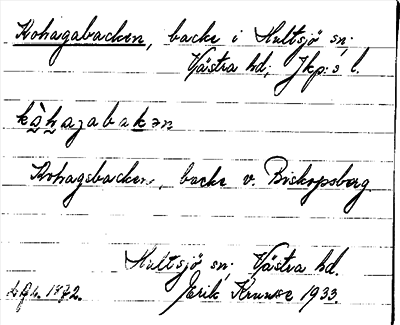 Kohagabacken, backe i Hultsjö sn;
Västra hd; Jkp:s l.
kåhagabakən
Kohagsbacken, backe v. Biskopsberg
Hultsjö sn; Västra hd.
1872. Erik 1933.